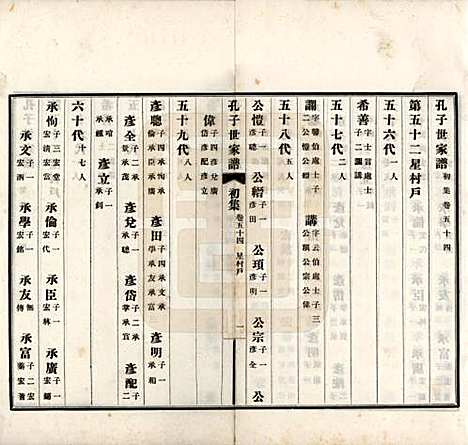 孔子世家譜 初集 卷五十四
第五十二星村戶
五十六代 一人
希善 字士言處士 子二 謂 講
五十七代 二人
謂 字馨伯處士 子二 公愷 公轄 講 字云伯處士 子三 公頊 公宗 公偉
五十八代 五人
公愷 子一 彥聰 公轄 子一 彥田 公頊 子一 彥明 公宗 子一 彥全 公
孔子世家譜 初集 卷五十四 星村戶 一
偉 子四 彥兌 彥岱 彥配 彥立
五十九代 八人
彥聰 子四 承恂 承倫 承臣 承廣 彥田 子四 承文 承學 承友 承富 彥明 子一 承相
彥全 子一 承茂 彥兌 子一 承聰 彥岱 子二 承掌 承 彥配 子二
承 承 彥立 子一 承
六十代 十七人
承恂 子三 宏堂 宏清 宏富 承倫 子一 宏 承臣 子一 宏林 承廣 子一 宏錫
承文 子二 宏 宏 承學 子一 宏銘 承友 子一 宏傳 承富 子二 宏 宏著